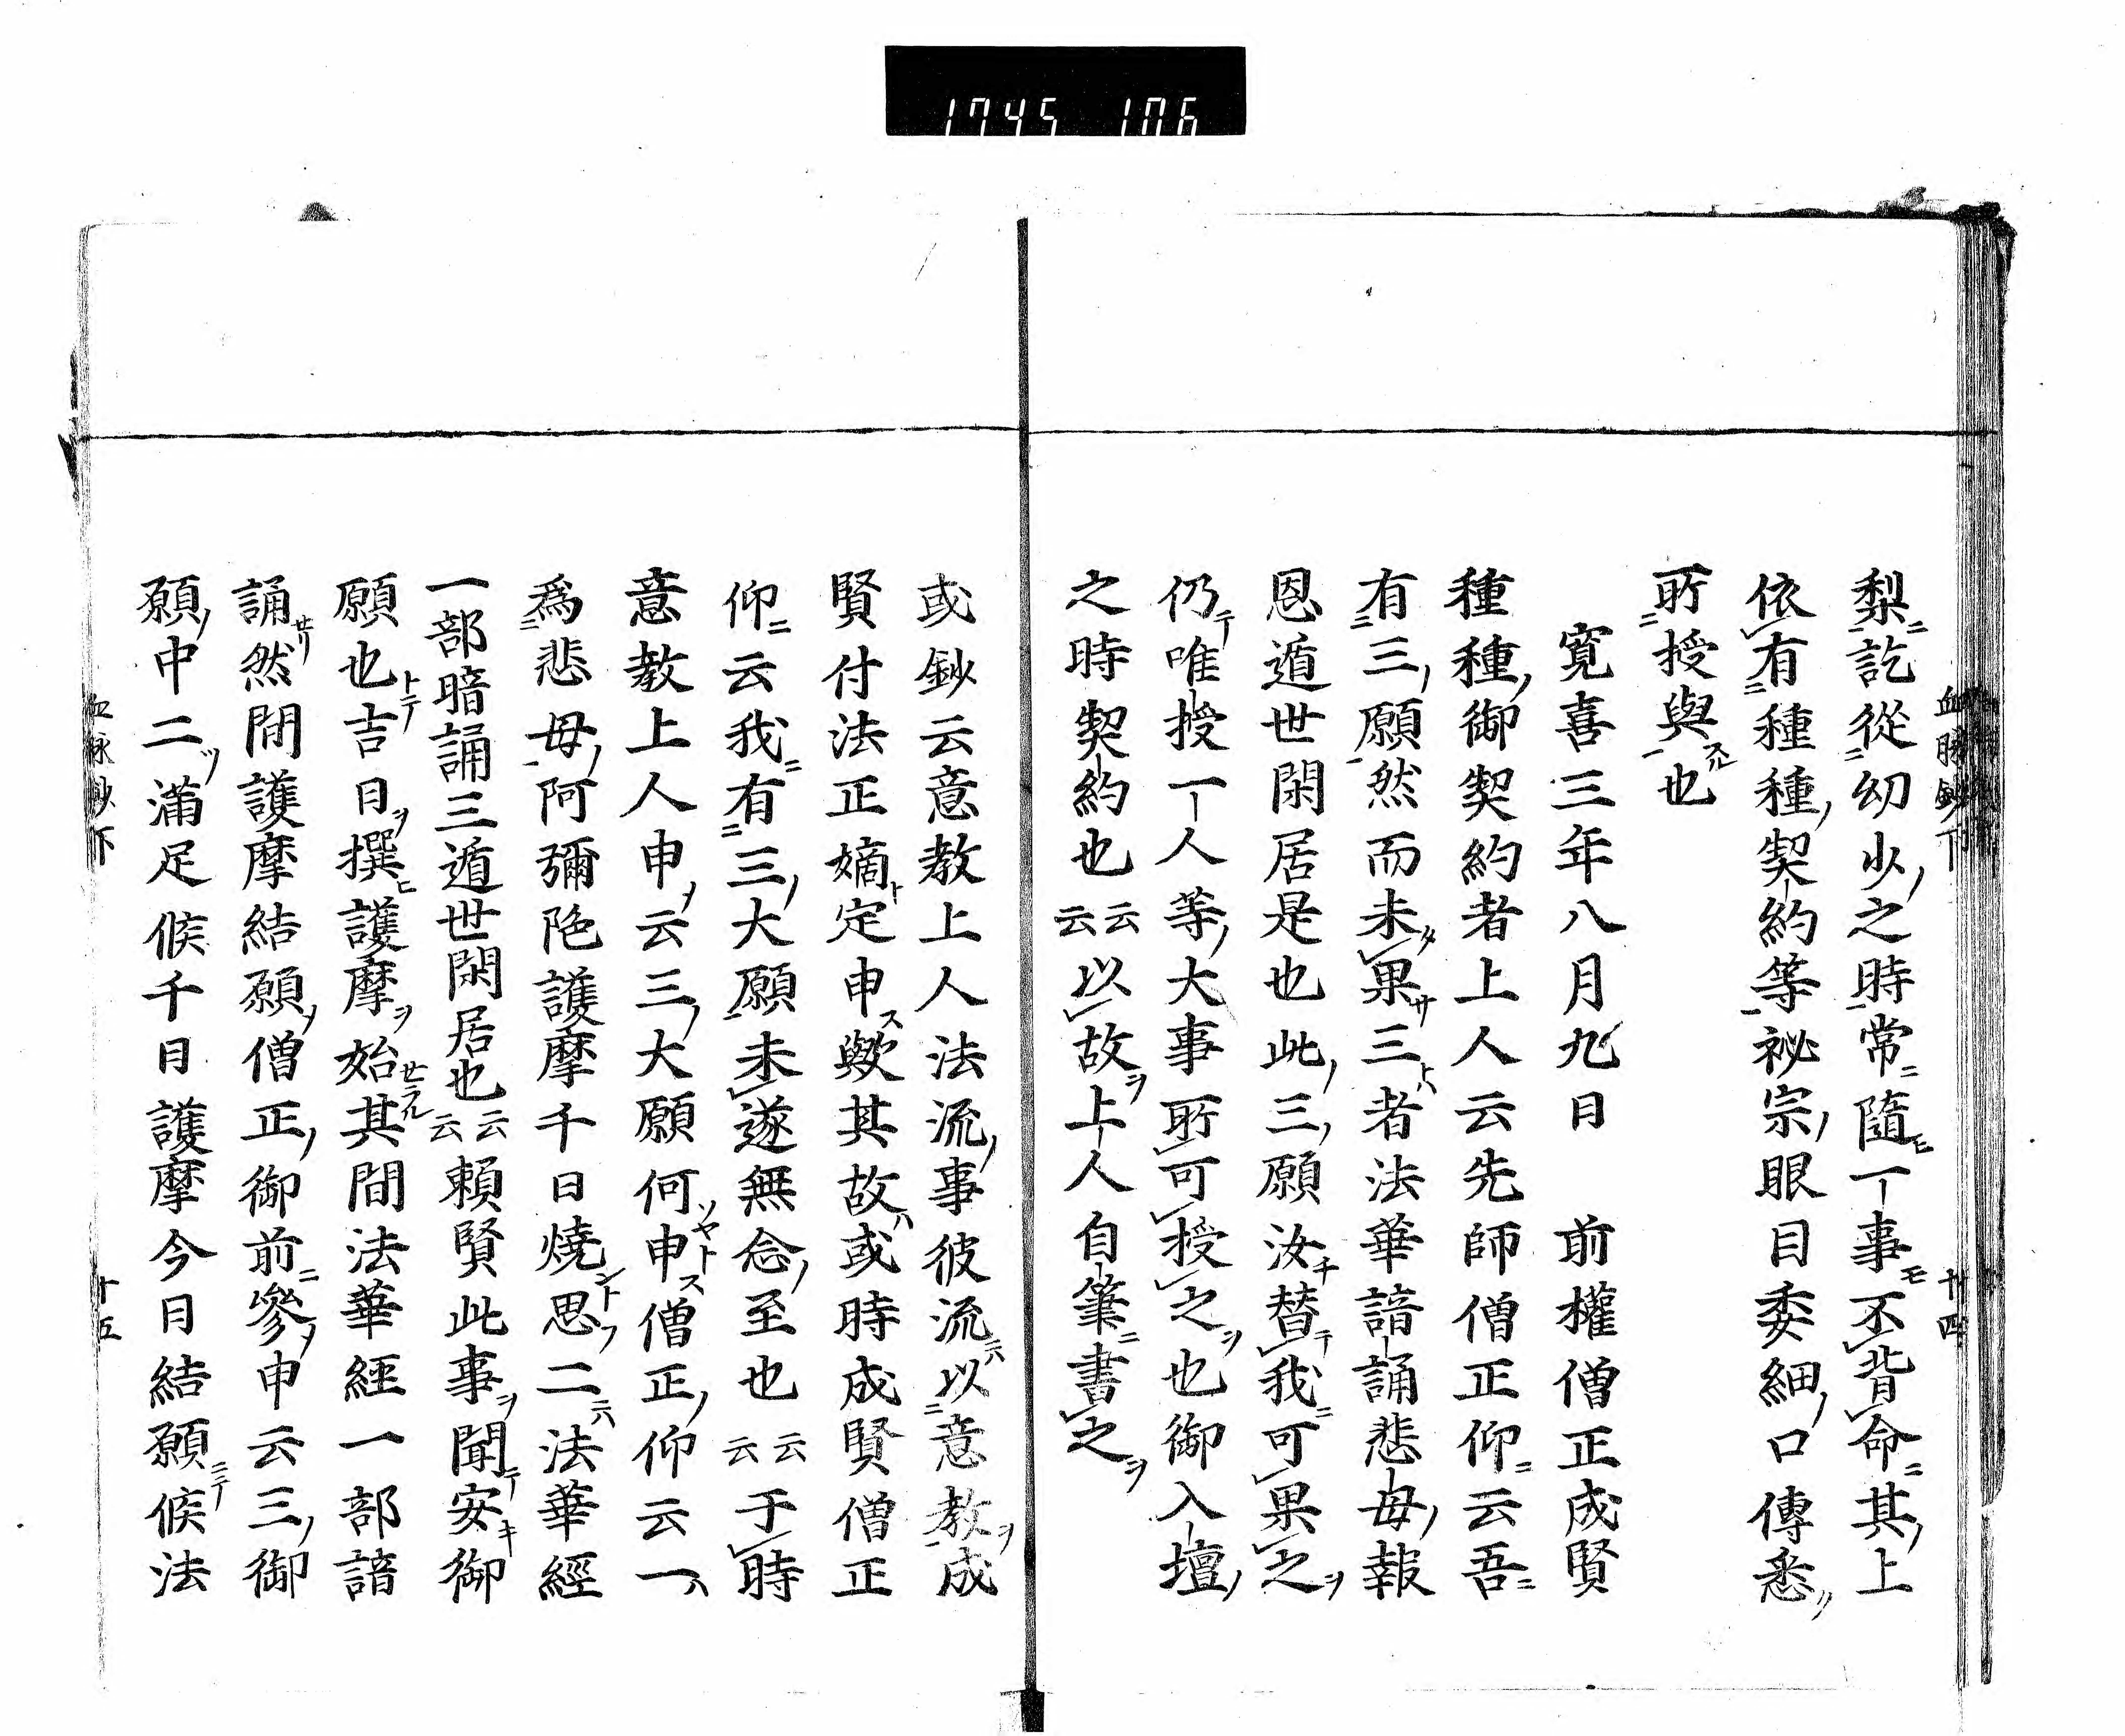 1745 106
血脉鈔下 十四
梨訖從幼少之時常隨一事不背命其上
依有種種契約等祕宗眼目委細口傳悉
所授與也
寛喜三年八月九日 前權僧正成賢
種種御契約者上人云先師僧正仰云吾
有三願然而未果三者法華諳誦悲母報
恩遁世閑居是也此三願汝替我可果之
仍唯授一人等大事所可授之也御入壇
之時契約也云云以故上人自筆書之
或鈔云意教上人法流事彼流以意教成
賢付法正嫡定申歟其故或時成賢僧正
仰云我有三大願未遂無念至也云云于時
意教上人申云三大願何申僧正仰云一
爲悲母阿彌陀護摩千日燒思二法華經
一部暗誦三遁世閑居也云云賴賢此事聞安御
願也吉日撰護摩始其間法華經一部諳
誦然間護摩結願僧正御前參申云三御
願中二滿足候千日護摩今日結願候法
血脉鈔下 十五